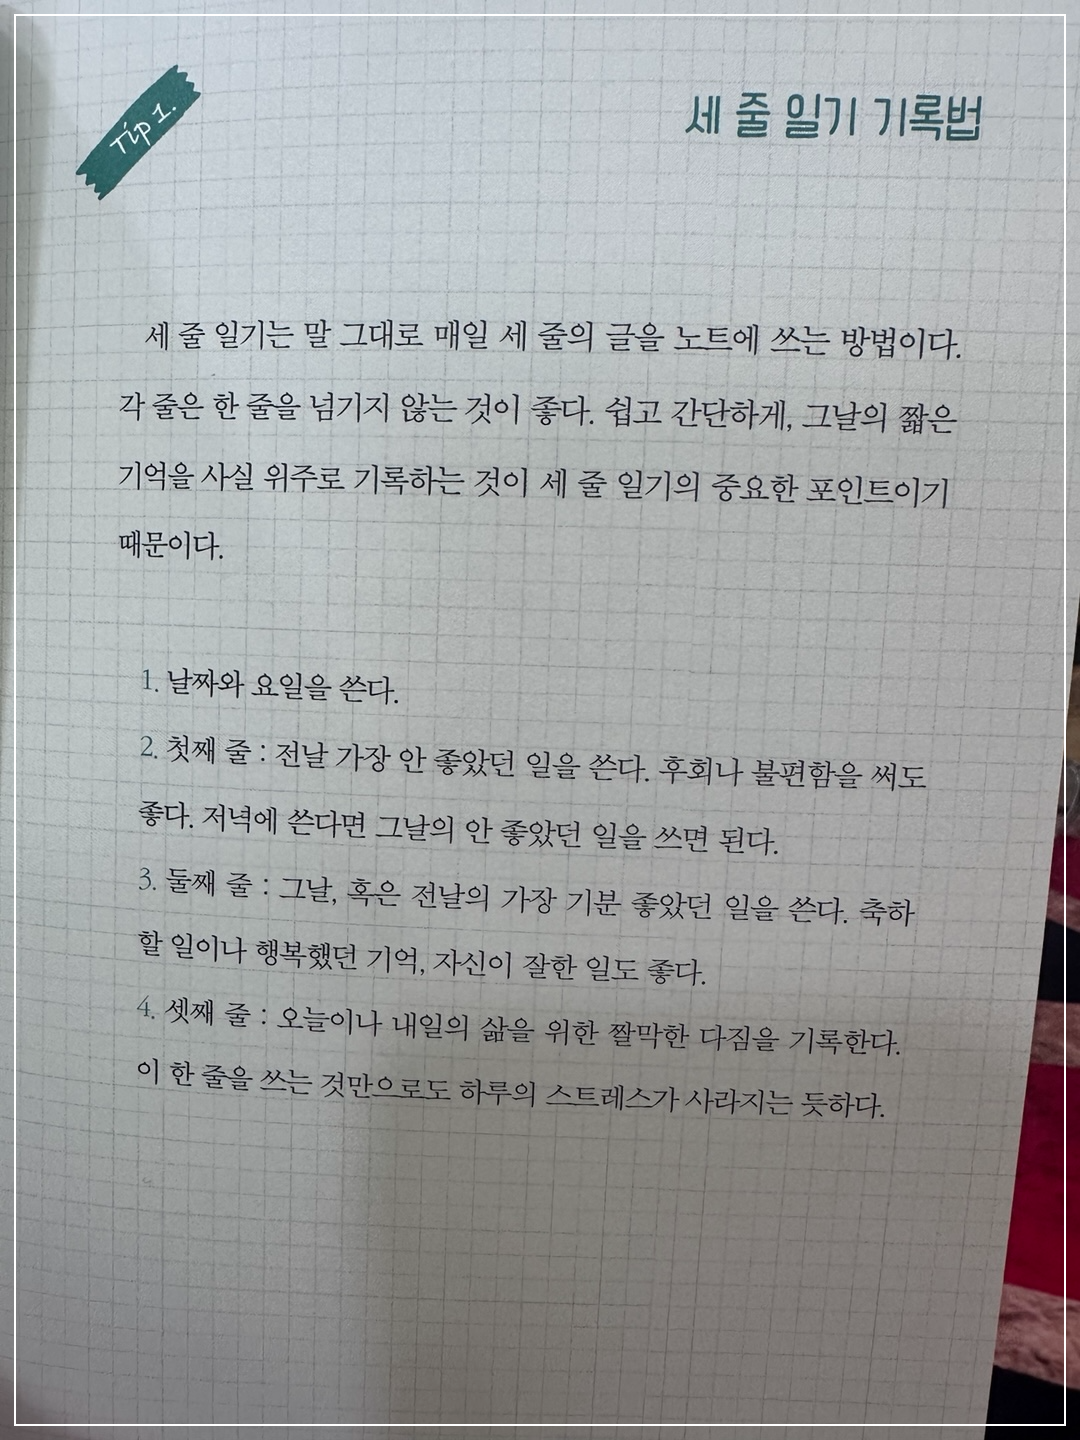 Tip 1.
세 줄 일기 기록법
세 줄 일기는 말 그대로 매일 세 줄의 글을 노트에 쓰는 방법이다.
각 줄은 한 줄을 넘기지 않는 것이 좋다. 쉽고 간단하게, 그날의 짧은
기억을 사실 위주로 기록하는 것이 세 줄 일기의 중요한 포인트이기
때문이다.
1. 날짜와 요일을 쓴다.
2. 첫째 줄 : 전날 가장 안 좋았던 일을 쓴다. 후회나 불편함을 써도
좋다. 저녁에 쓴다면 그날의 안 좋았던 일을 쓰면 된다.
3. 둘째 줄 : 그날, 혹은 전날의 가장 기분 좋았던 일을 쓴다. 축하
할 일이나 행복했던 기억, 자신이 잘한 일도 좋다.
4. 셋째 줄 : 오늘이나 내일의 삶을 위한 짤막한 다짐을 기록한다.
이 한 줄을 쓰는 것만으로도 하루의 스트레스가 사라지는 듯하다.